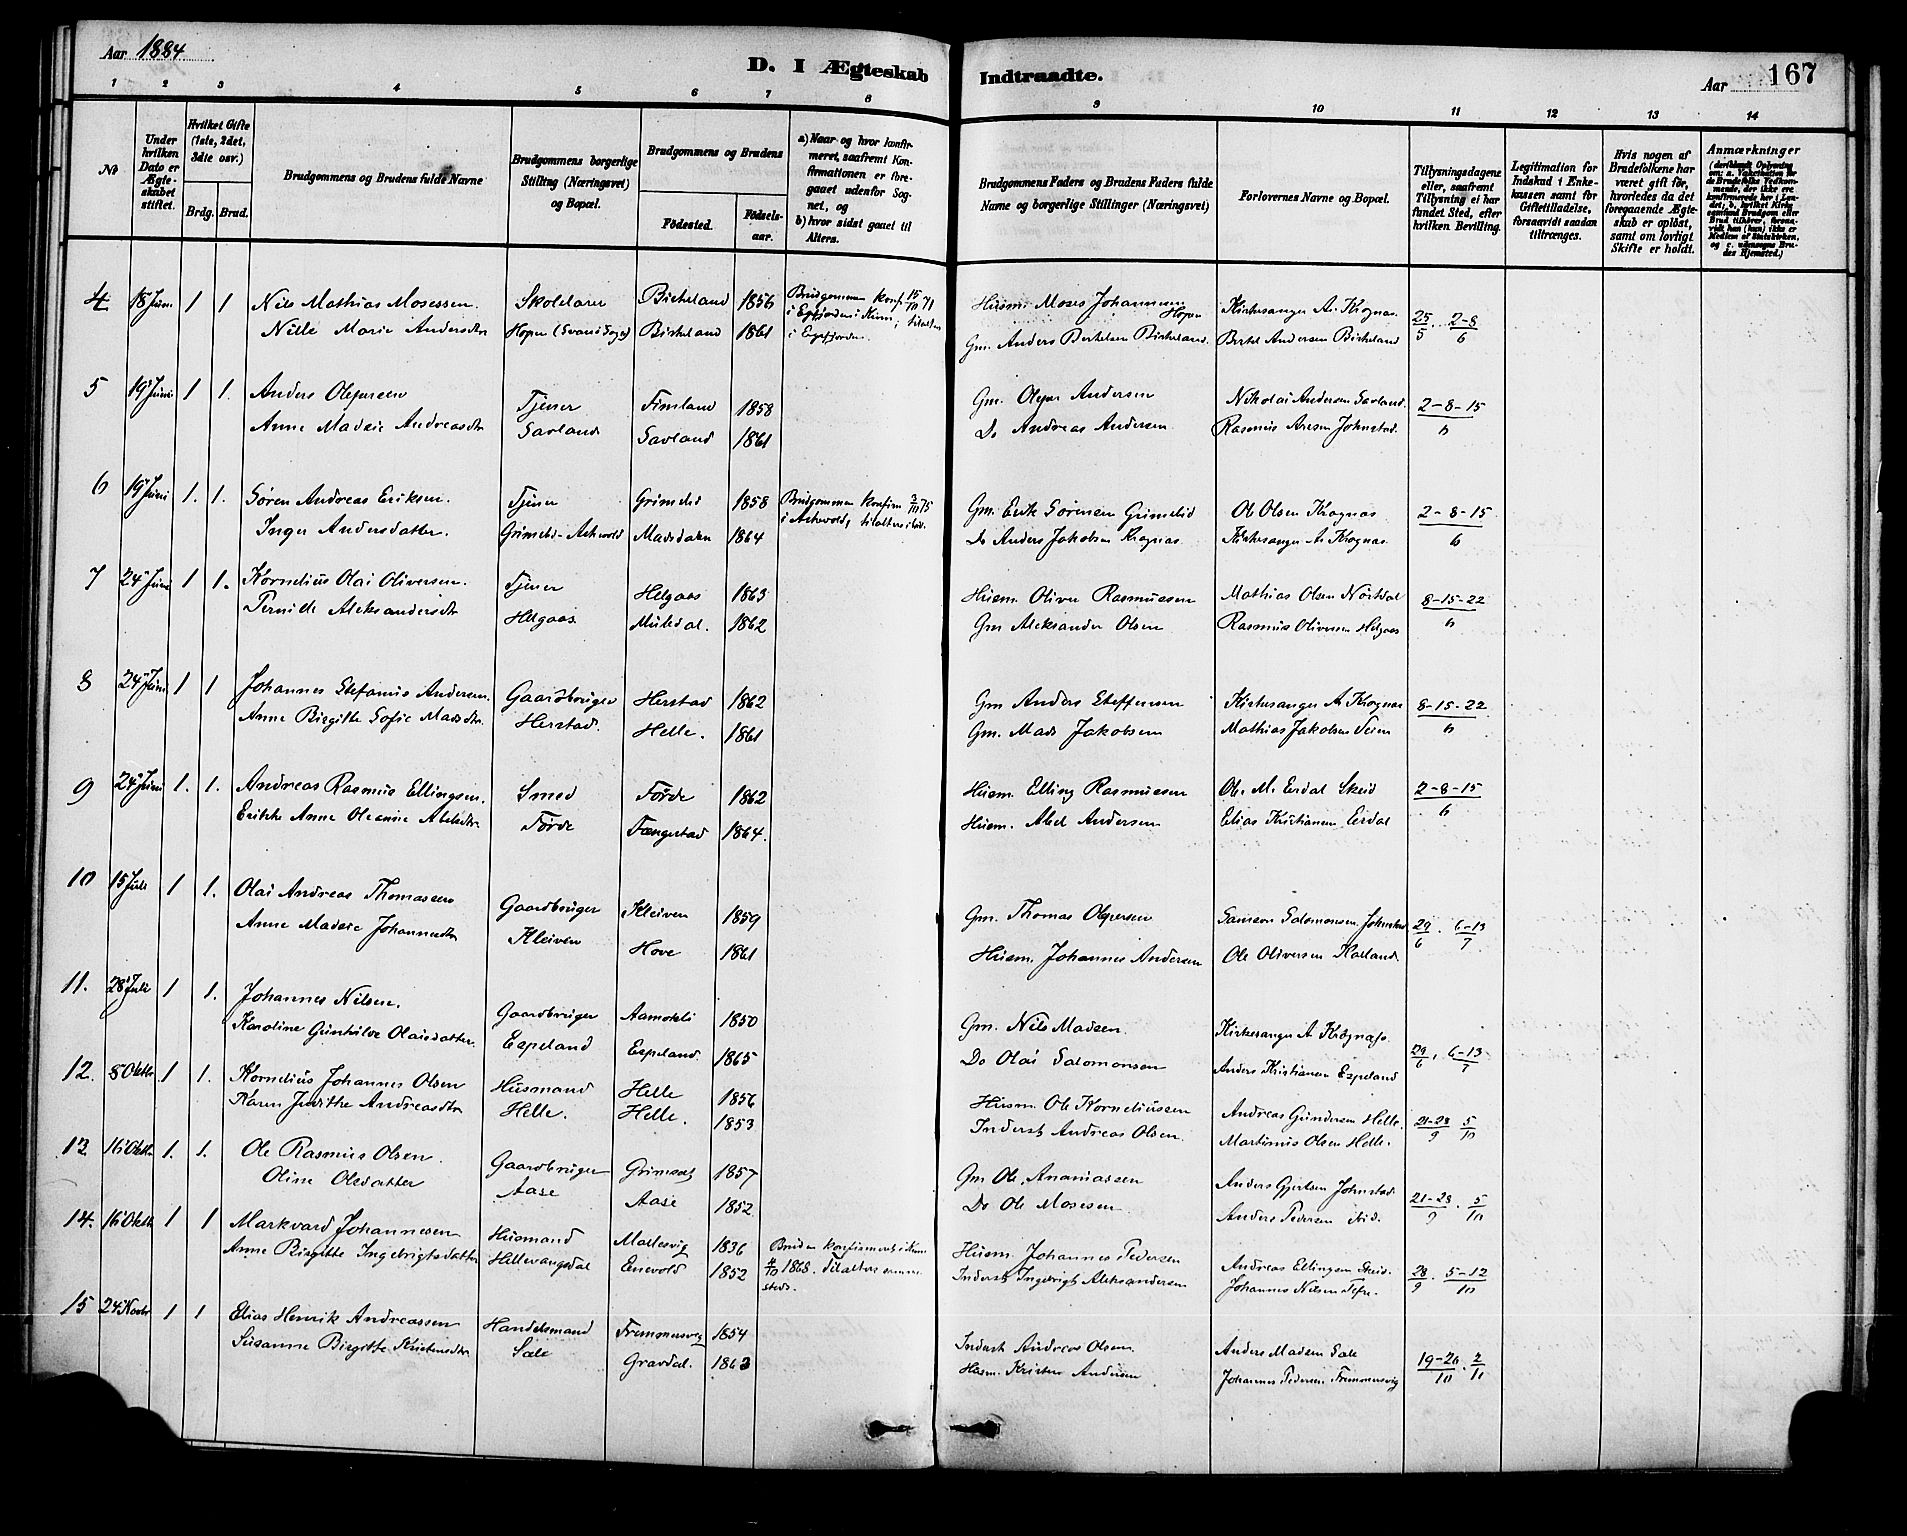 Aar 1884
D. I Ægteskab Indtraadte.
Aar 167
1 2 3 4 5 6 7 8 9 10 11 12 13 14
No
Under hvilken Dato er Ægteskabet stiftet.
Hvilket Gifte (1ste, 2det, 3die osv.)
Brdg. Brud.
Brudgommens og Brudens fulde Navne
Brudgommens borgerlige Stilling (Næringsvei) og Bopæl.
Brudgommens og Brudens
Födested. Födselsaar.
a) Naar og hvor konfirmeret, saafremt Konfirmationen er foregaaet udenfor Sognet, og
b) hvor sidst gaaet til Alters.
Brudgommens Faders og Brudens Faders fulde Navne og borgerlige Stillinger (Næringsvei)
Forlovernes Navne og Bopæl.
Tillysningsdagene eller, saafremt Tillysning ei har fundet Sted, efter hvilken Bevilling.
Legitimation for Indskud i Enkekassen samt for Giftetilladelse, forsaavidt saadan tiltrænges.
Hvis nogen af Brudefolkene har været gift før, hvorledes da det foregaaende Ægteskab er oplöst, samt om lovligt Skifte er holdt.
Anmærkninger
4 18 Juni 1 1 Nils Mathias Mosessen. Skolelærer Birkeland 1856 Brudgommen konf. 15/10 71 Husm. Moses Johannsen Hopen Kirkesanger A. Krognæs. 25/5 . 2-8/6
Nille Marie Andersdtr Hopen (Svanø Sogn) Birkeland 1861 Gm. Anders Bertelsen Birkeland. Bertel Andersen Birkeland
5 19 Juni 1 1. Anders Olsen Tjener Fimland 1858 Gm. Andersen Nikolai Andersen Savland. 2-8-15/6
Anne Madsie Andreasdtr Savland Savland 1861 Do Andreas Andersen Rasmus Johnstad.
6 19 Juni 1. 1. Søren Andreas Eriksen. Tjener Grimelid 1858 Brudgommen konfirm 3/10 75 Gm. Erik Sørensen Grimelid Ole Olsen Krognæs 2-8-15/6
Inger Andersdatter. Grimelid-Askvold Madsdalen 1864 i Askvold, Do Anders Jakobsen Krognæs Kirkesanger A. Krognæs.
7 24 Juni 1 1. Kornelius Olai Oliversen. Tjener Helgaas 1863 Husm. Oliver Rasmussen Mathias Olsen 8-15-22/6
Pernille Aleksandersdtr Helgaas. Muledal. 1862 Gm Aleksander Olsen Rasmus Oliversen Helgaas
8 24 Juni 1 1 Johannes Stefanus Andersen. Gaardbruger Herstad 1862 Gm Anders Steffensen Kirkesanger A. Krognæs 8-15-22/6
Anne Birgitte Sofie Madsdtr. Herstad. Helle. 1861 Gm. Mads Jakobsen Mathias Jakobsen Teien
9 24 Juni 1. 1. Andreas Rasmus Ellingsen. Smed Førde 1862 Husm. Elling Rasmussen Ole M. Eirdal Skeid 2-8-15/6
Erikke Anne Oleanne Abelsdtr. Førde Fængestad 1864. Husm. Abel Andersen Elias Kristiansen Eirdal
10 15 Juli 1 1. Olai Andreas Thomassen Gaardbruger Kleiven 1859 Gm. Thomas Olsen Samson Salomonsen Johnstad 29/6 . 6-13/7
Anne Madsie Johannesdtr Kleiven Hove 1861 Husm. Johannes Andersen Ole Oliversen
11. 28 Juli 1 1. Johannes Nilsen. Gaardbruger Aamotli 1850 Gm. Nils Madsen. Kirkesanger A Krognæs. 29/6 . 6-13/7
Karoline Gunhilde Olaisdatter. Espeland Espeland. 1865 Do Olai Salomonsen Anders Kristiansen Espeland
12. 5 Oktbr 1 1. Kornelius Johannes Olsen Husmand Helle 1856 Husm. Ole Korneliussen Andreas Gundersen Helle. 21-28/9 5/10
Karen Judithe Andreasdtr Helle. Helle. 1853 Inderst Andreas Olsen. Martinus Olsen Helle.
13 16 Oktbr 1. 1. Ole Rasmus Olsen Gaardbruger Grimset 1857 Gm Ole Ananiassen Anders Gjertsen Johnstad 21-28/9 . 5/10
Oline Olsdatter Aase Aase 1852 Do Ole Mosesen. Anders Pedersen ibid.
14. 16 Oktbr 1 1 Markvard Johannesen Husmand 1836 Bruden konfirmeret i Kinn Husm. Johannes Pedersen Andreas Ellingsen Skeid. 28/9 . 5-12/10
Anne Birgitte Ingebrigtsdatter Hellevangsdal Enevold 1852 1868. tilalters samme steds. Inderst Ingebrigt Aleksandersen Johannes Nilsen Tefre.
15 24 Novbr 1 1 Elias Henrik Andreassen Handelsmand Fremmersvig 1854 Inderst Andreas Olsen. Anders Madsen Sale 19-26/10 . 2/11
Susanne Birgitte Kristensdtr Sale Gravdal. 1863 Husm. Kristen Andersen Johannes Pedersen Fremmersvig